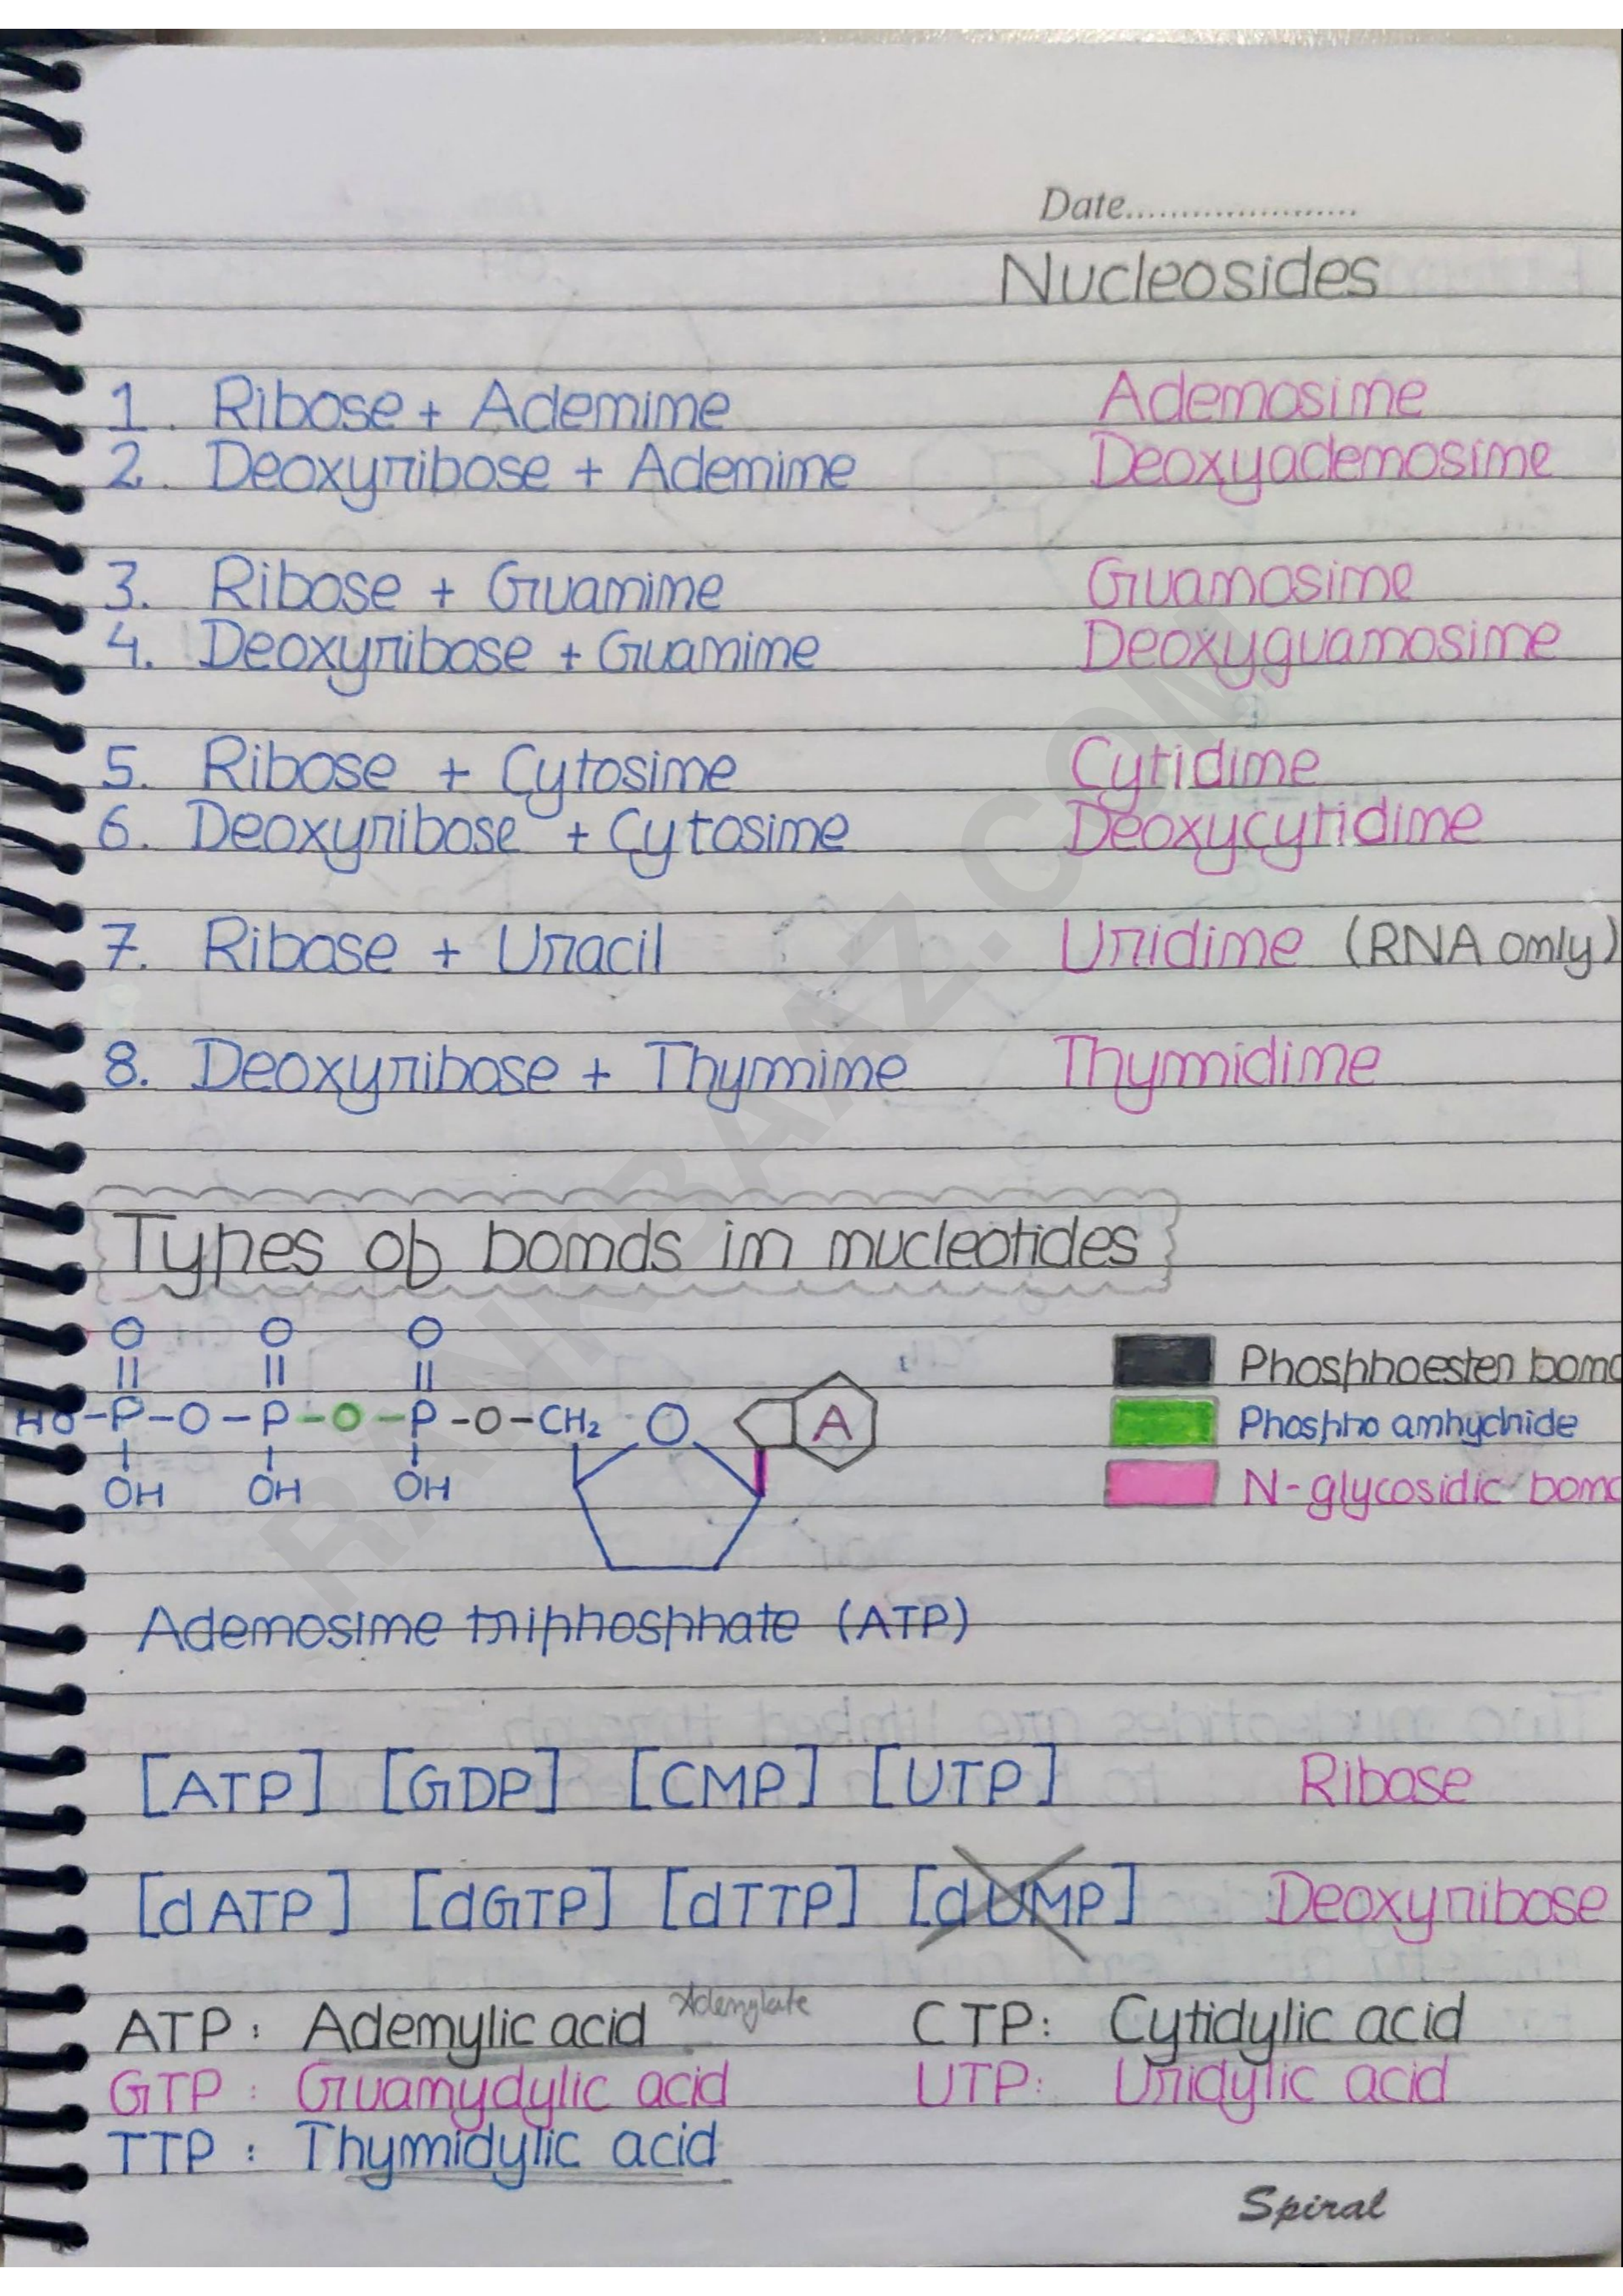 Date.....................
Nucleosides
1. Ribose + Adenine Adenosine
2. Deoxyribose + Adenine Deoxyadenosine
3. Ribose + Guanine Guanosine
4. Deoxyribose + Guanine Deoxyguanosine
5. Ribose + Cytosine Cytidine
6. Deoxyribose + Cytosine Deoxycytidine
7. Ribose + Uracil Uridine (RNA only)
8. Deoxyribose + Thymine Thymidine
Types of bonds in nucleotides
O O O
|| || ||
HO-P-O-P-O-P-O-CH₂ O A
OH OH OH
Phosphoester bond
Phospho anhydride
N-glycosidic bond
Adenosine triphosphate (ATP)
[ATP] [GDP] [CMP] [UTP] Ribose
[dATP] [dGTP] [dTTP] [dUMP] Deoxyribose
ATP: Adenylic acid Adenylate CTP: Cytidylic acid
GTP: Guanydylic acid UTP: Uridylic acid
TTP: Thymidylic acid
Spiral
RANKBAAZ.COM